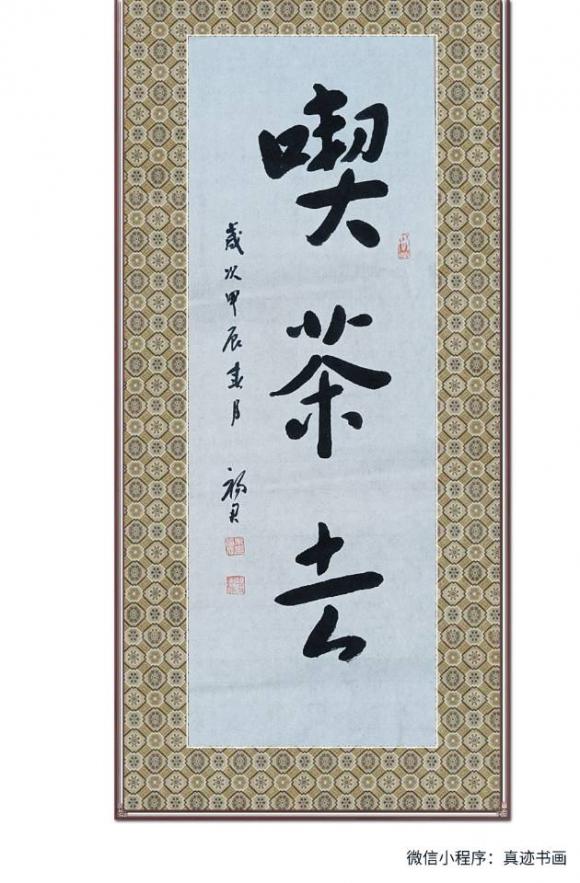 喫茶去
歲次甲辰春月
微信小程序：真迹书画